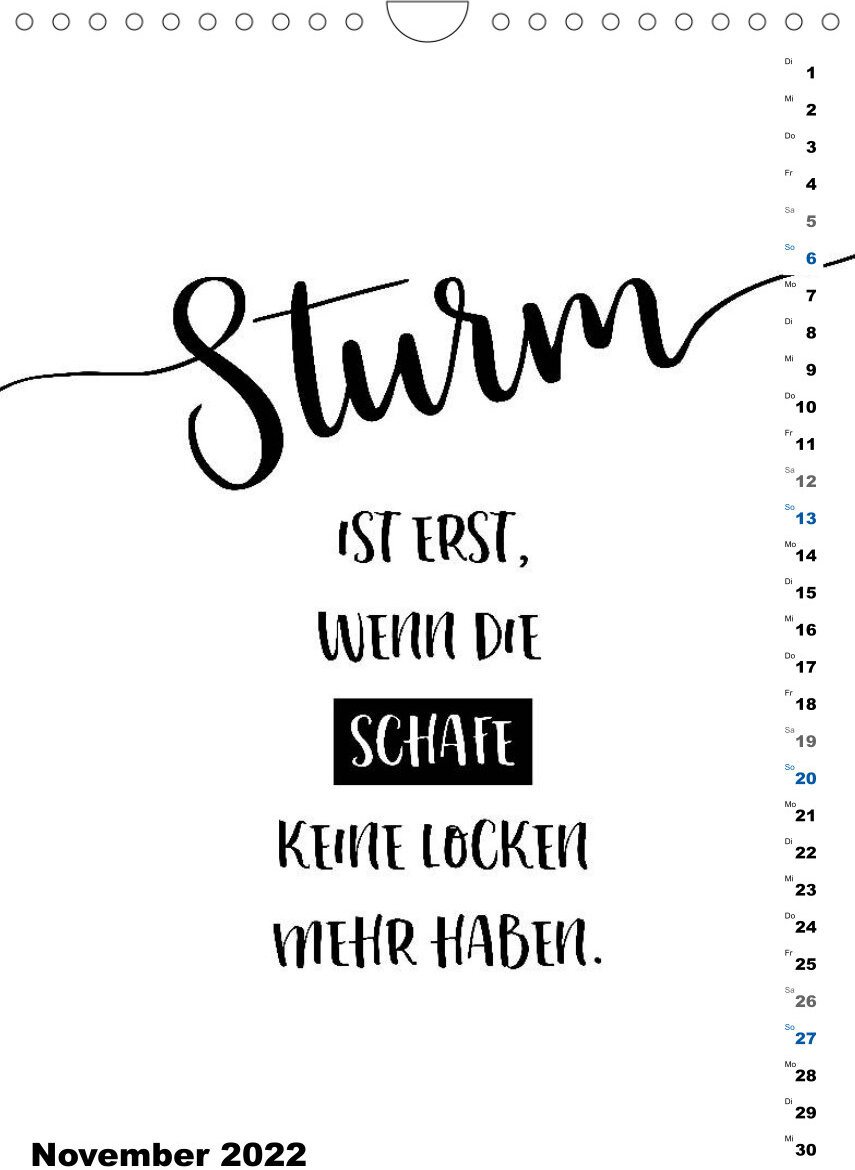 Sturm
IST ERST,
WENN DIE
SCHAFE
KEINE LOCKEN
MEHR HABEN.
Di 1
Mi 2
Do 3
Fr 4
Sa 5
So 6
Mo 7
Di 8
Mi 9
Do 10
Fr 11
Sa 12
So 13
Mo 14
Di 15
Mi 16
Do 17
Fr 18
Sa 19
So 20
Mo 21
Di 22
Mi 23
Do 24
Fr 25
Sa 26
So 27
Mo 28
Di 29
Mi 30
November 2022